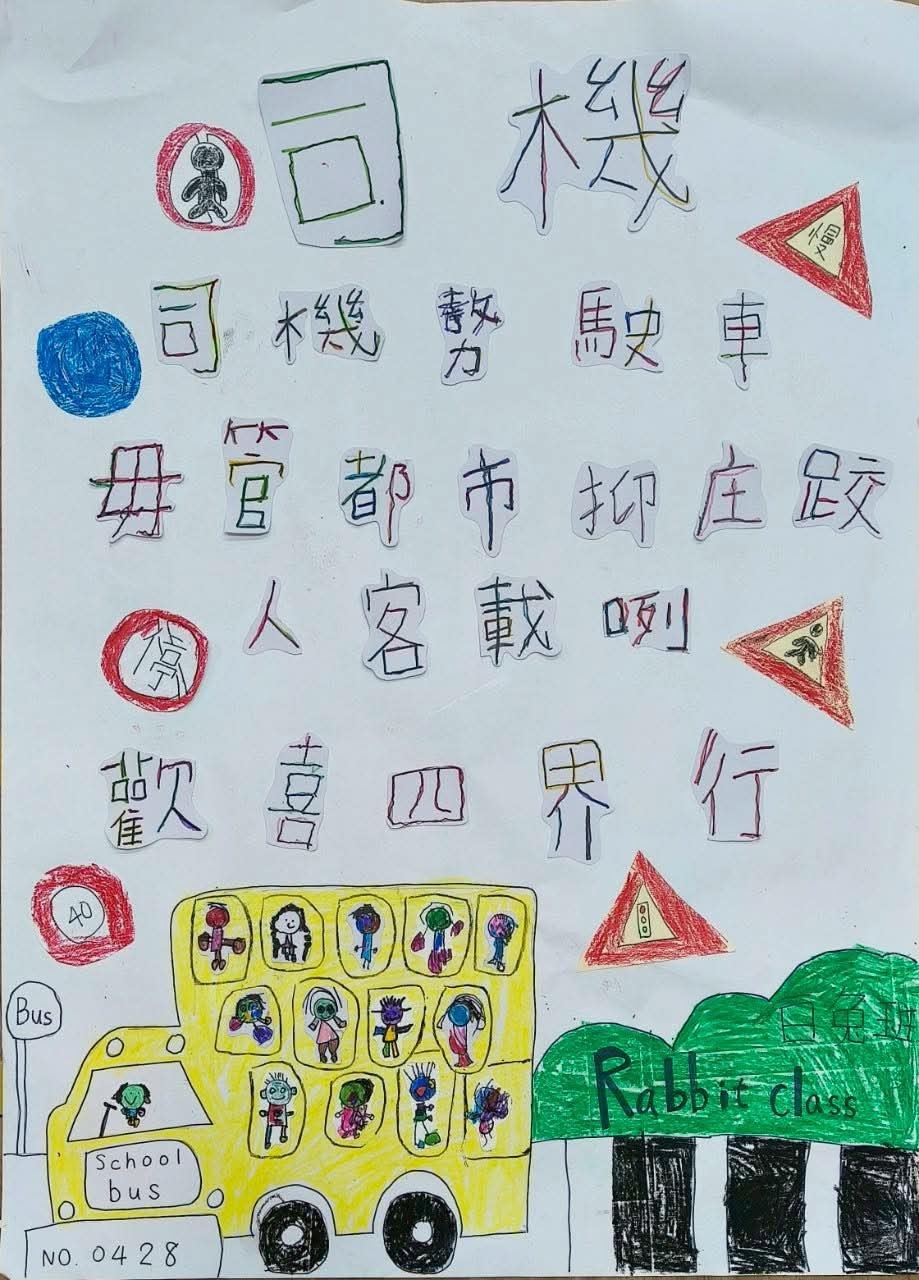 司機
慢
司機𠢕駛車
毋管都市抑庄跤
人客載咧
停
歡喜四界行
40
Bus
白兔班
Rabbit class
School
bus
NO. 0428